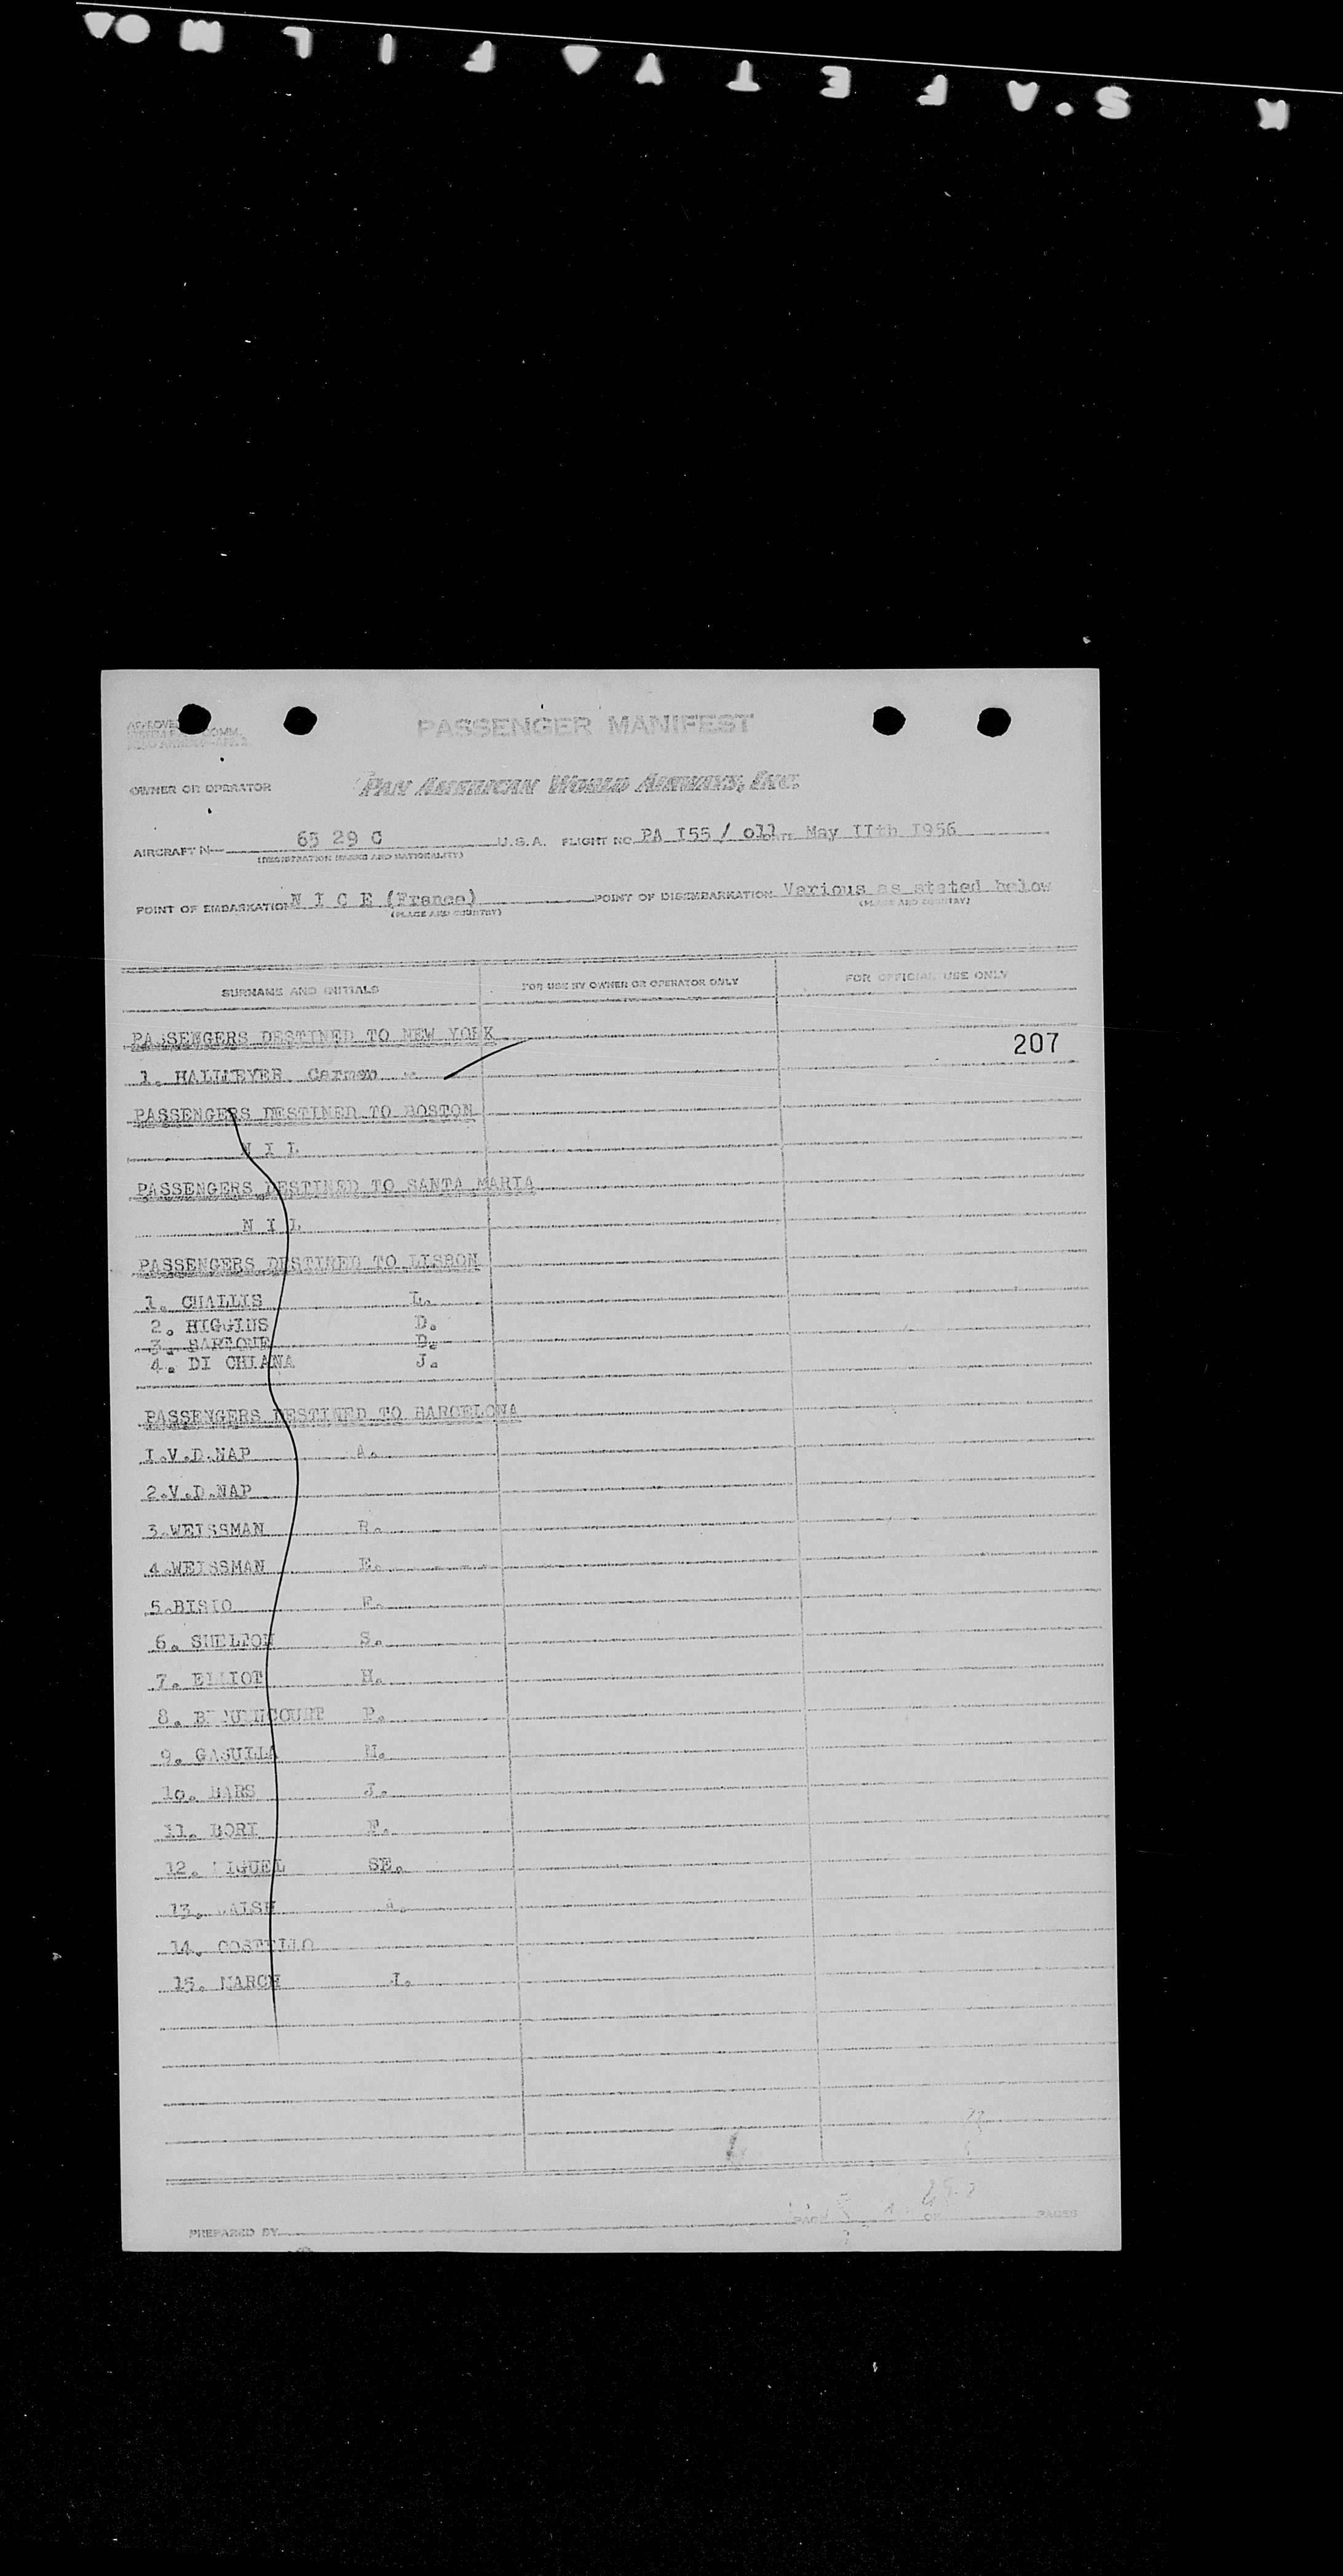 S.A F E T Y F I L M
PASSENGER MANIFEST
OWNER OR OPERATOR PAN AMERICAN WORLD AIRWAYS, INC.
AIRCRAFT N— 65 29 C U.S.A. FLIGHT NO. PA I55 / o11 DATE May IIth I956
(REGISTRATION MARKS AND NATIONALITY)
POINT OF EMBARKATION N I C E (France) POINT OF DISEMBARKATION Various as stated below
(PLACE AND COUNTRY) (PLACE AND COUNTRY)
SURNAME AND INITIALS FOR USE BY OWNER OR OPERATOR ONLY FOR OFFICIAL USE ONLY
PASSENGERS DESTINED TO NEW YORK
207
1. HALLMEYER Carmen
PASSENGERS DESTINED TO BOSTON
N I L
PASSENGERS DESTINED TO SANTA MARIA
N I L
PASSENGERS DESTINED TO LISBON
1. CHALLIS L.
2. HIGGINS D.
3.
4. DI CHIANA J.
PASSENGERS DESTINED TO BARCELONA
I.V.D.NAP A.
2.V.D.NAP
3.WEISSMAN R.
4.WEISSMAN E.
5.BISIO F.
6. SHELTON S.
7. ELLIOT H.
8. P.
9. GASULLA M.
10. J.
11. BORI F.
12. MIGUEL SE.
13. WALSH A.
14. COSTELLO
15. MARCH I.
PREPARED BY PAGE OF PAGES